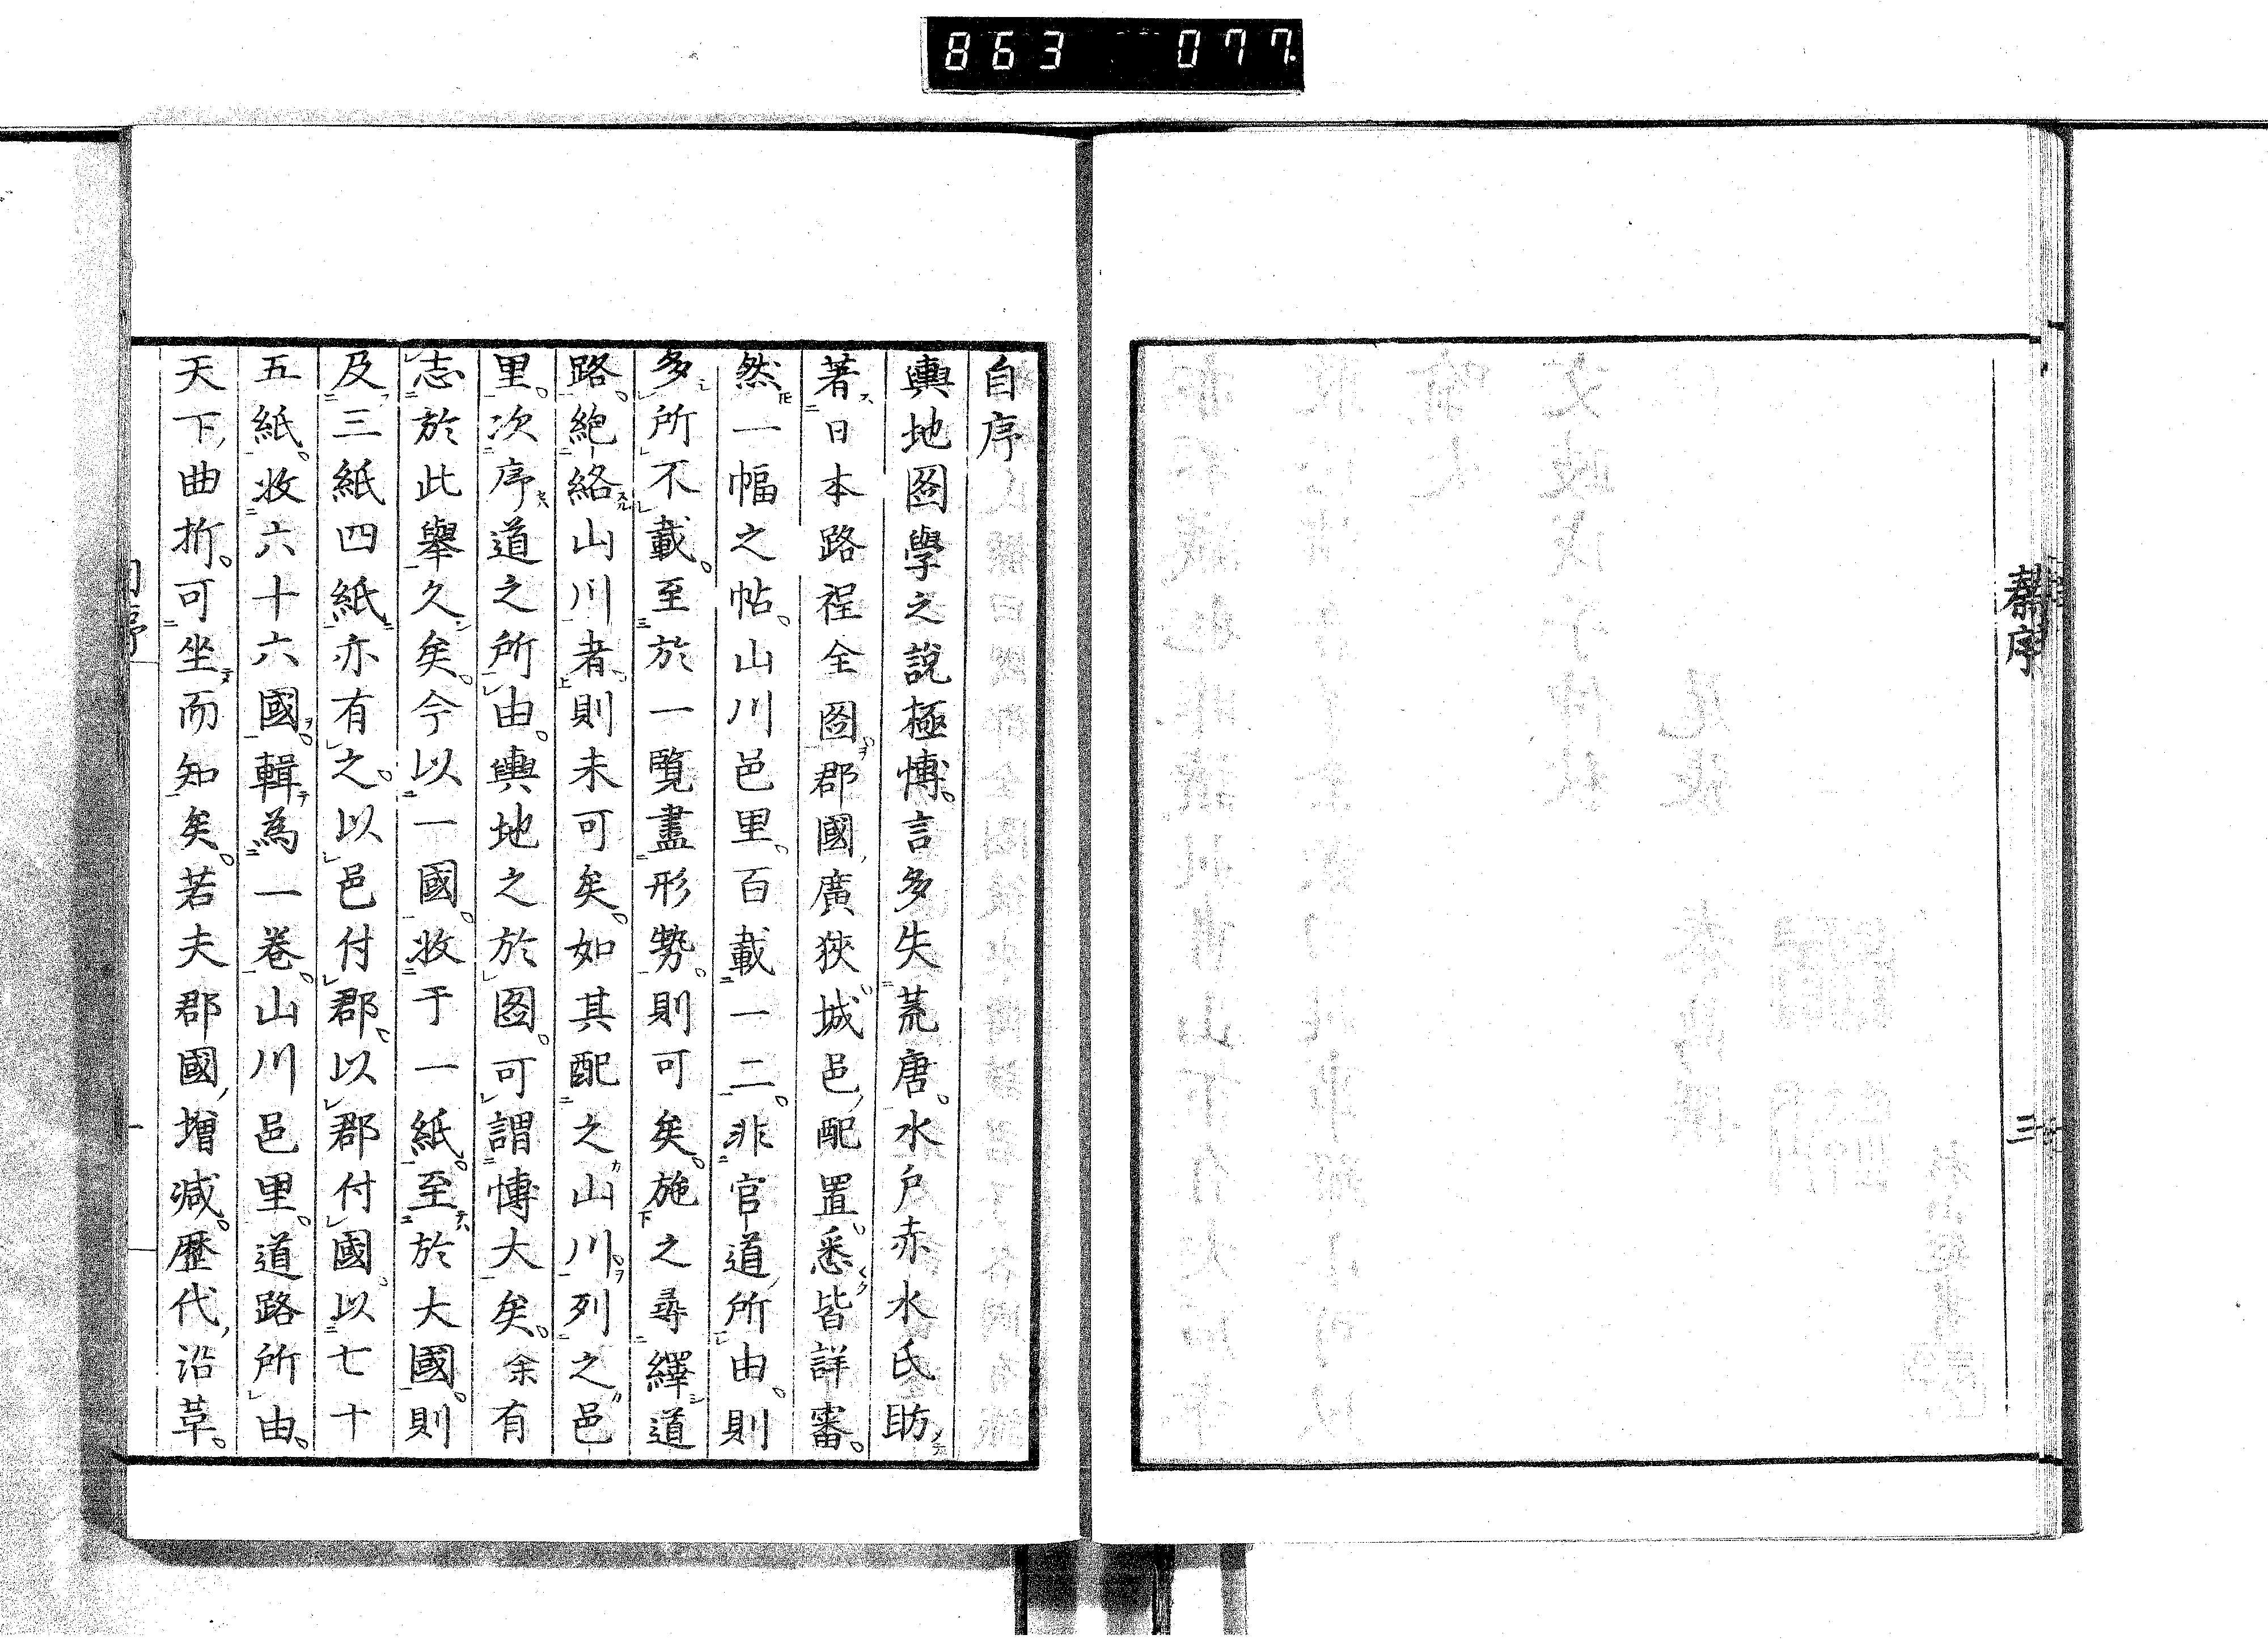 863 077
序
三
自序
輿地圖學之說極愽。言多失荒唐。水戶赤水氏昉
著日本路程全圖。郡國廣狹。城邑配置。悉皆詳審。
然一幅之帖。山川邑里。百載一二。非官道所由。則
多所不載。至於一覽盡形勢。則可矣。施之尋繹道
路。絶絡山川者。則未可矣。如其配之山川。列之邑
里。次序道之所由。輿地之於圖。可謂愽大矣。余有
志於此舉久矣。今以一國。收于一紙。至於大國。則
及三紙四紙亦有之。以邑付郡。以郡付國。以七十
五紙。收六十六國。輯為一卷。山川邑里。道路所由。
天下曲折。可坐而知矣。若夫郡國增減。歷代沿革。